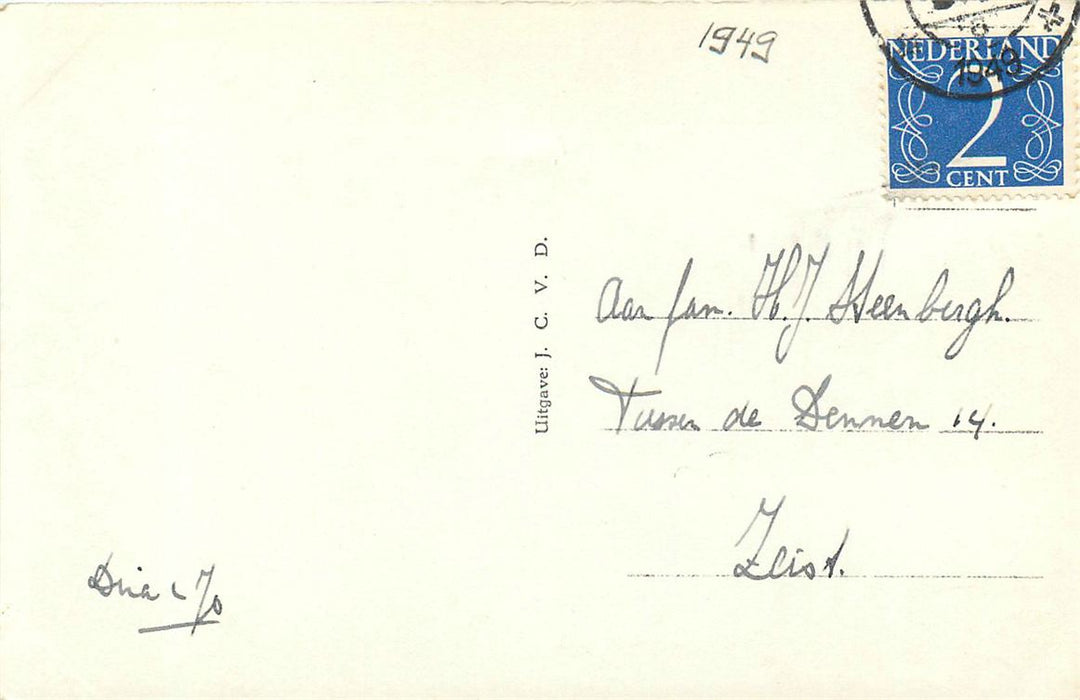 1949
NEDERLAND
1949
2
CENT
Uitgave: J. C. V. D.
Aan fam. H.J. Steenbergh.
Tussen de Dennen 14.
Zeist.
Dina & Jo